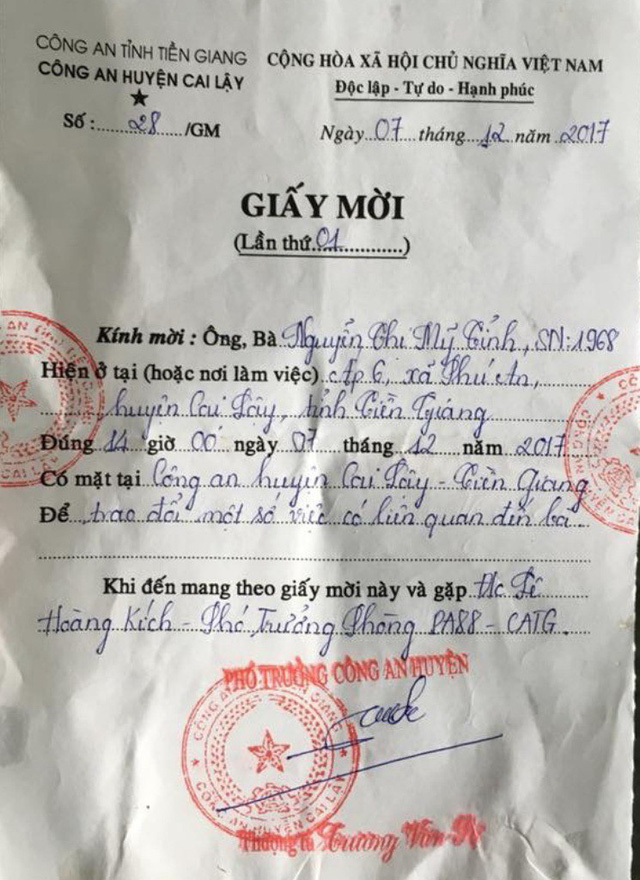 CÔNG AN TỈNH TIỀN GIANG
CÔNG AN HUYỆN CAI LẬY
Số :......28....../GM
CỘNG HÒA XÃ HỘI CHỦ NGHĨA VIỆT NAM
Độc lập - Tự do - Hạnh phúc
Ngày..07..tháng..12..năm..2017
GIẤY MỜI
(Lần thứ..01............)
Kính mời : Ông, Bà Nguyễn Thị Mỹ Tỉnh, SN:1968
Hiện ở tại (hoặc nơi làm việc) ấp 6, xã Phú An,
huyện Cai Lậy, tỉnh Tiền Giang
Đúng 14 giờ 00 ngày 07 tháng 12 năm 2017
Có mặt tại Công an huyện Cai Lậy - Tiền Giang
Để trao đổi một số việc có liên quan đến bà
Khi đến mang theo giấy mời này và gặp Đ/c Lê
Hoàng Kích - Phó Trưởng Phòng PA88 - CATG.
PHÓ TRƯỞNG CÔNG AN HUYỆN
CÔNG AN HUYỆN CAI LẬY
Thượng tá Trương Văn